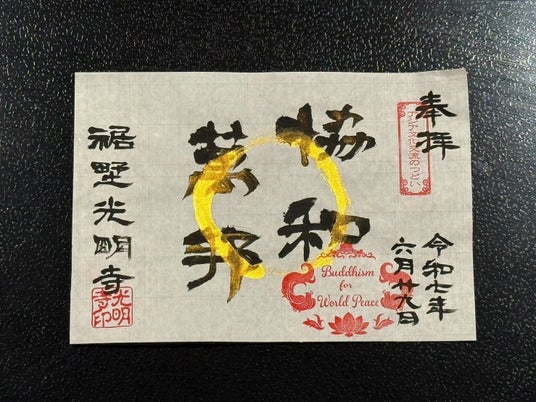 奉拝
アジア文化交流のつどい
令和七年
六月廿九日
協和
萬邦
Buddhism
for
World Peace
裾墅光明寺
光明
寺印